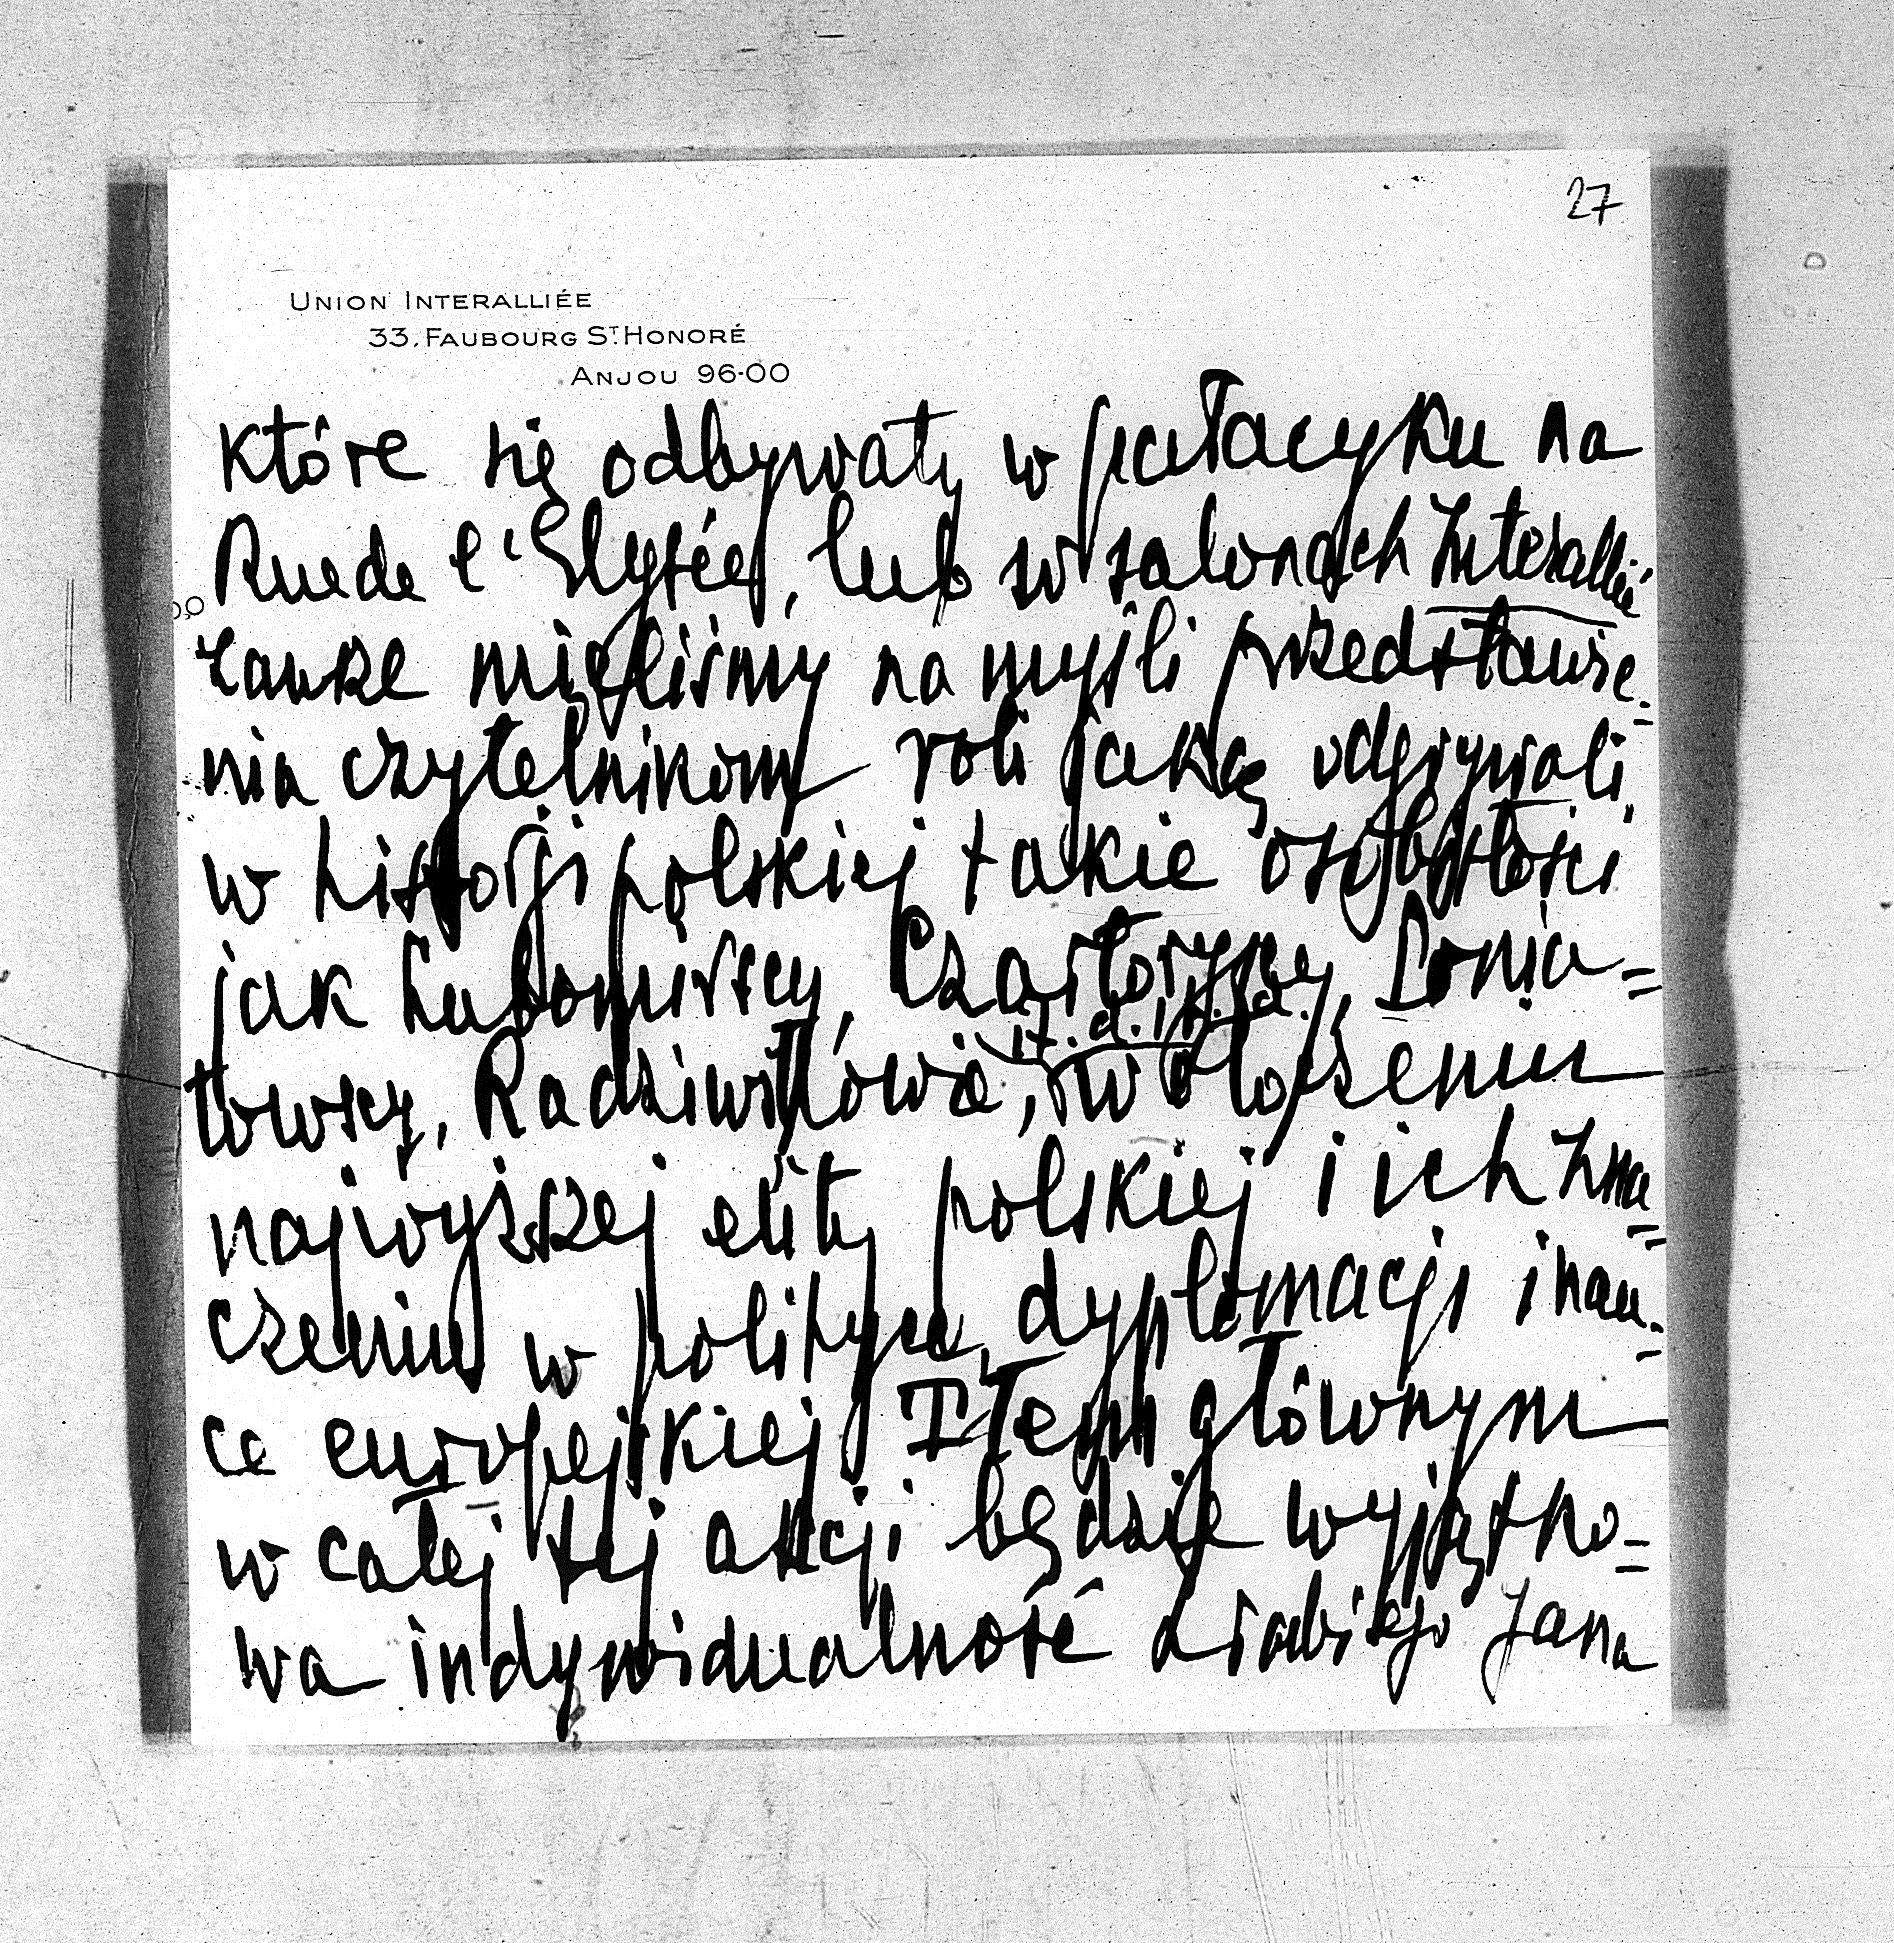 27
UNION INTERALLIÉE
33, FAUBOURG ST. HONORÉ
ANJOU 96-00
które się odbywały w pałacyku na
Rue de l'Elysée, lub w salonach Interallié
zawsze mieliśmy na myśli przedstawie=
nia czytelnikom roli jaką odgrywali
w historji polskiej takie osobistości
jak Lubomirscy, Czartoryscy, Ponia=
towscy, Radziwiłłowie, i t. d. i t. d. w otoczeniu
najwyższej elity polskiej i ich zna=
czeniu w polityce, dyplomacji i nau=
ce europejskiej. Tłem głównym
w całej tej akcji będzie wyjątko=
wa indywidualność hrabiego Jana